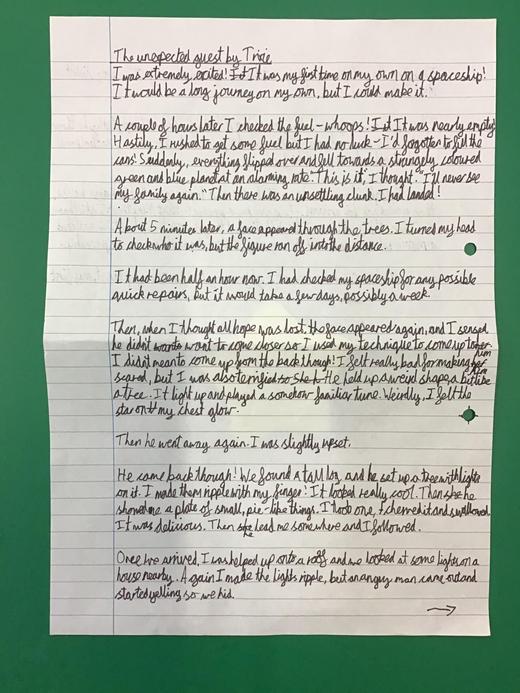 The unexpected guest by Trixie
I was extremely excited! It It was my first time on my own on a spaceship!
It would be a long journey on my own, but I could make it.
A couple of hours later I checked the fuel - whoops! It It was nearly empty
Hastily, I rushed to get some fuel but I had no luck - I'd forgotten to fill the
cans! Suddenly, everything flipped over and fell towards a strangely, coloured
green and blue planet at an alarming rate. "This is it", I thought. "I'll never see
my family again." Then there was an unsettling clunk. I had landed!
About 5 minutes later, a face appeared through the trees. I turned my head
to check who it was, but the figure ran off into the distance.
It had been half an hour now. I had checked my spaceship for any possible
quick repairs, but it would take a few days, possibly a week.
Then, when I thought all hope was lost, the face appeared again, and I sensed
he didn't want to come closer so I used my technique to come up to him
I didn't mean to come up from the back though! I felt really bad for making him
scared, but I was also terrified so He held up a weird shape, a bit like
a tree. It light up and played a somehow familiar tune. Weirdly, I felt the
star on my chest glow.
Then he went away again. I was slightly upset.
He came back though! We found a tall log, and he set up a tree with lights
on it. I made them ripple with my finger! It looked really cool. Then he
showed me a plate of small, pie-like things. I took one, chewed it and swallowed.
It was delicious. Then he lead me somewhere and I followed.
Once we arrived, I was helped up onto a roof and we looked at some lights on a
house nearby. Again I made the lights ripple, but an angry man came out and
started yelling so we hid.